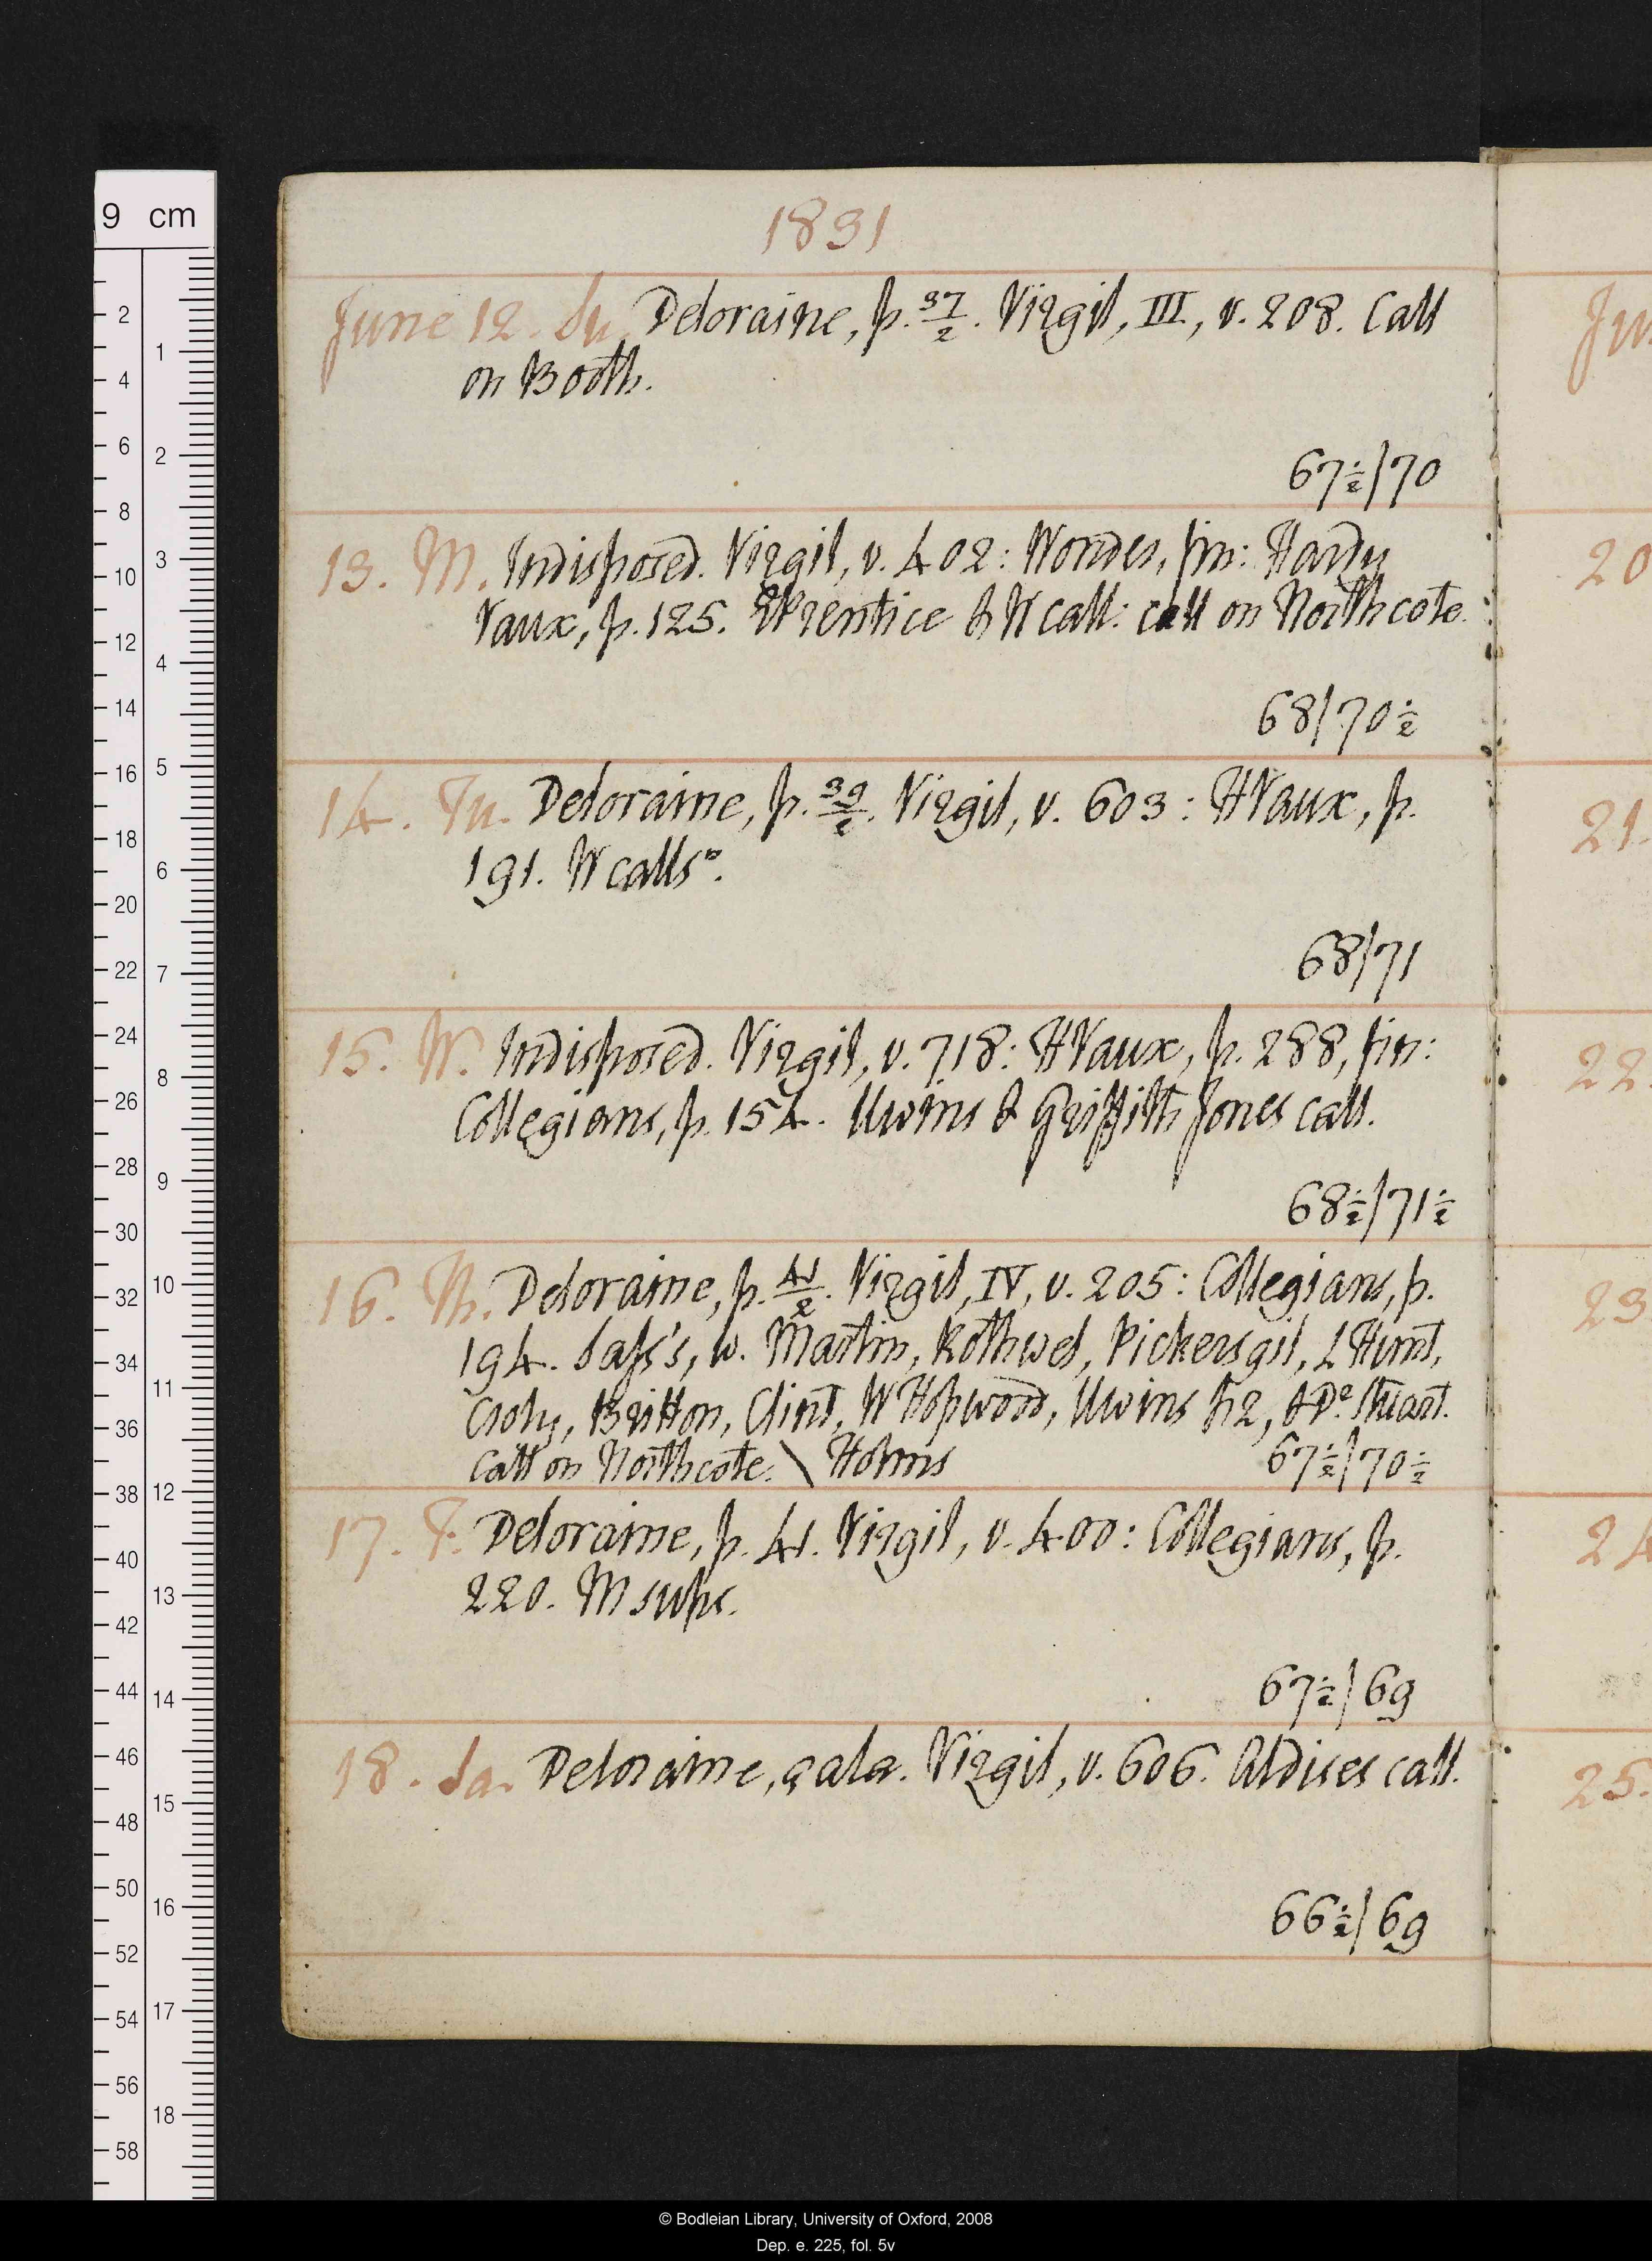 1831
June 12. Su. Deloraine, p. 37/2. Virgil, III, v. 208. Call
on Booth.
67½/70
13. M. Indisposed. Virgil, v. 402: Wordes, fin: Hardy
Vaux, p. 125. EPrentice & W call: call on Northcote.
68/70½
14. Tu. Deloraine, p. 39/2. Virgil, v. 603: HVaux, p.
191. W calls°.
68/71
15. W. Indisposed. Virgil, v. 718: HVaux, p. 288, fin:
Collegians, p. 154. Uwins & Griffith Jones call.
68½/71½
16. Th. Deloraine, p. 41/2. Virgil, IV, v. 205: Collegians, p.
194. Sass's, w. Martin, Rothwel, Pickersgil, L Hunt,
Croly, Britton, Clint, W Hopwood, Uwins 2, & Dr Stuart.
Call on Northcote. \ Holms
67½/70½
17. F. Deloraine, p. 41. Virgil, v. 400: Collegians, p.
220. M sups.
67½/69
18. Sa. Deloraine, çala. Virgil, v. 606. Aldises call.
66½/69
Ju
20
21.
22.
23.
24
25.
9 cm
2
4
6
8
10
12
14
16
18
20
22
24
26
28
30
32
34
36
38
40
42
44
46
48
50
52
54
56
58
1
2
3
4
5
6
7
8
9
10
11
12
13
14
15
16
17
18
© Bodleian Library, University of Oxford, 2008
Dep. e. 225, fol. 5v